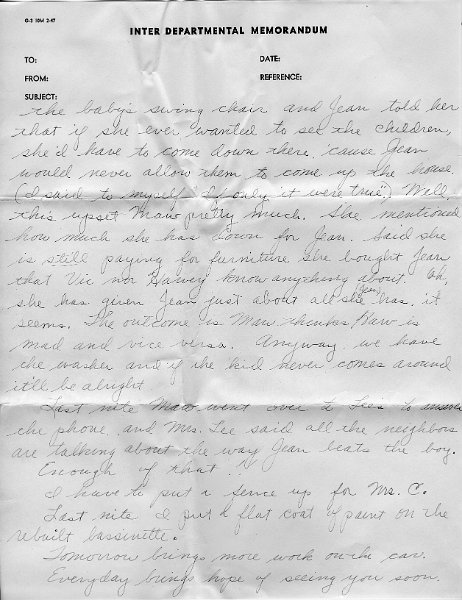 G-3 10M 2-57
INTER DEPARTMENTAL MEMORANDUM
TO:
DATE:
FROM:
REFERENCE:
SUBJECT:
the baby's swing chair and Jean told her
that if she ever wanted to see the children,
she'd have to come down there, 'cause Jean
would never allow them to come up the house.
(I said to myself "If only it were true") Well,
this upset Maw pretty much. She mentioned
how much she has done for Jean. Said she
is still paying for furniture she bought Jean
that Vic nor know anything about. Oh,
she has given Jean just about all she (Jean) has, it
seems. The outcome is Maw thinks Paw is
mad and vice versa. Anyway, we have
the washer and if the kid never comes around
it'll be alright.
Last nite Maw went over to Lee's to answer
the phone and Mrs. Lee said all the neighbors
are talking about the way Jean beats the boy.
Enough of that!
I have to put a fence up for Mrs. C.
Last nite I put a flat coat of paint on the
rebuilt bassinette.
Tomorrow brings more work on the car.
Everyday brings hope of seeing you soon.